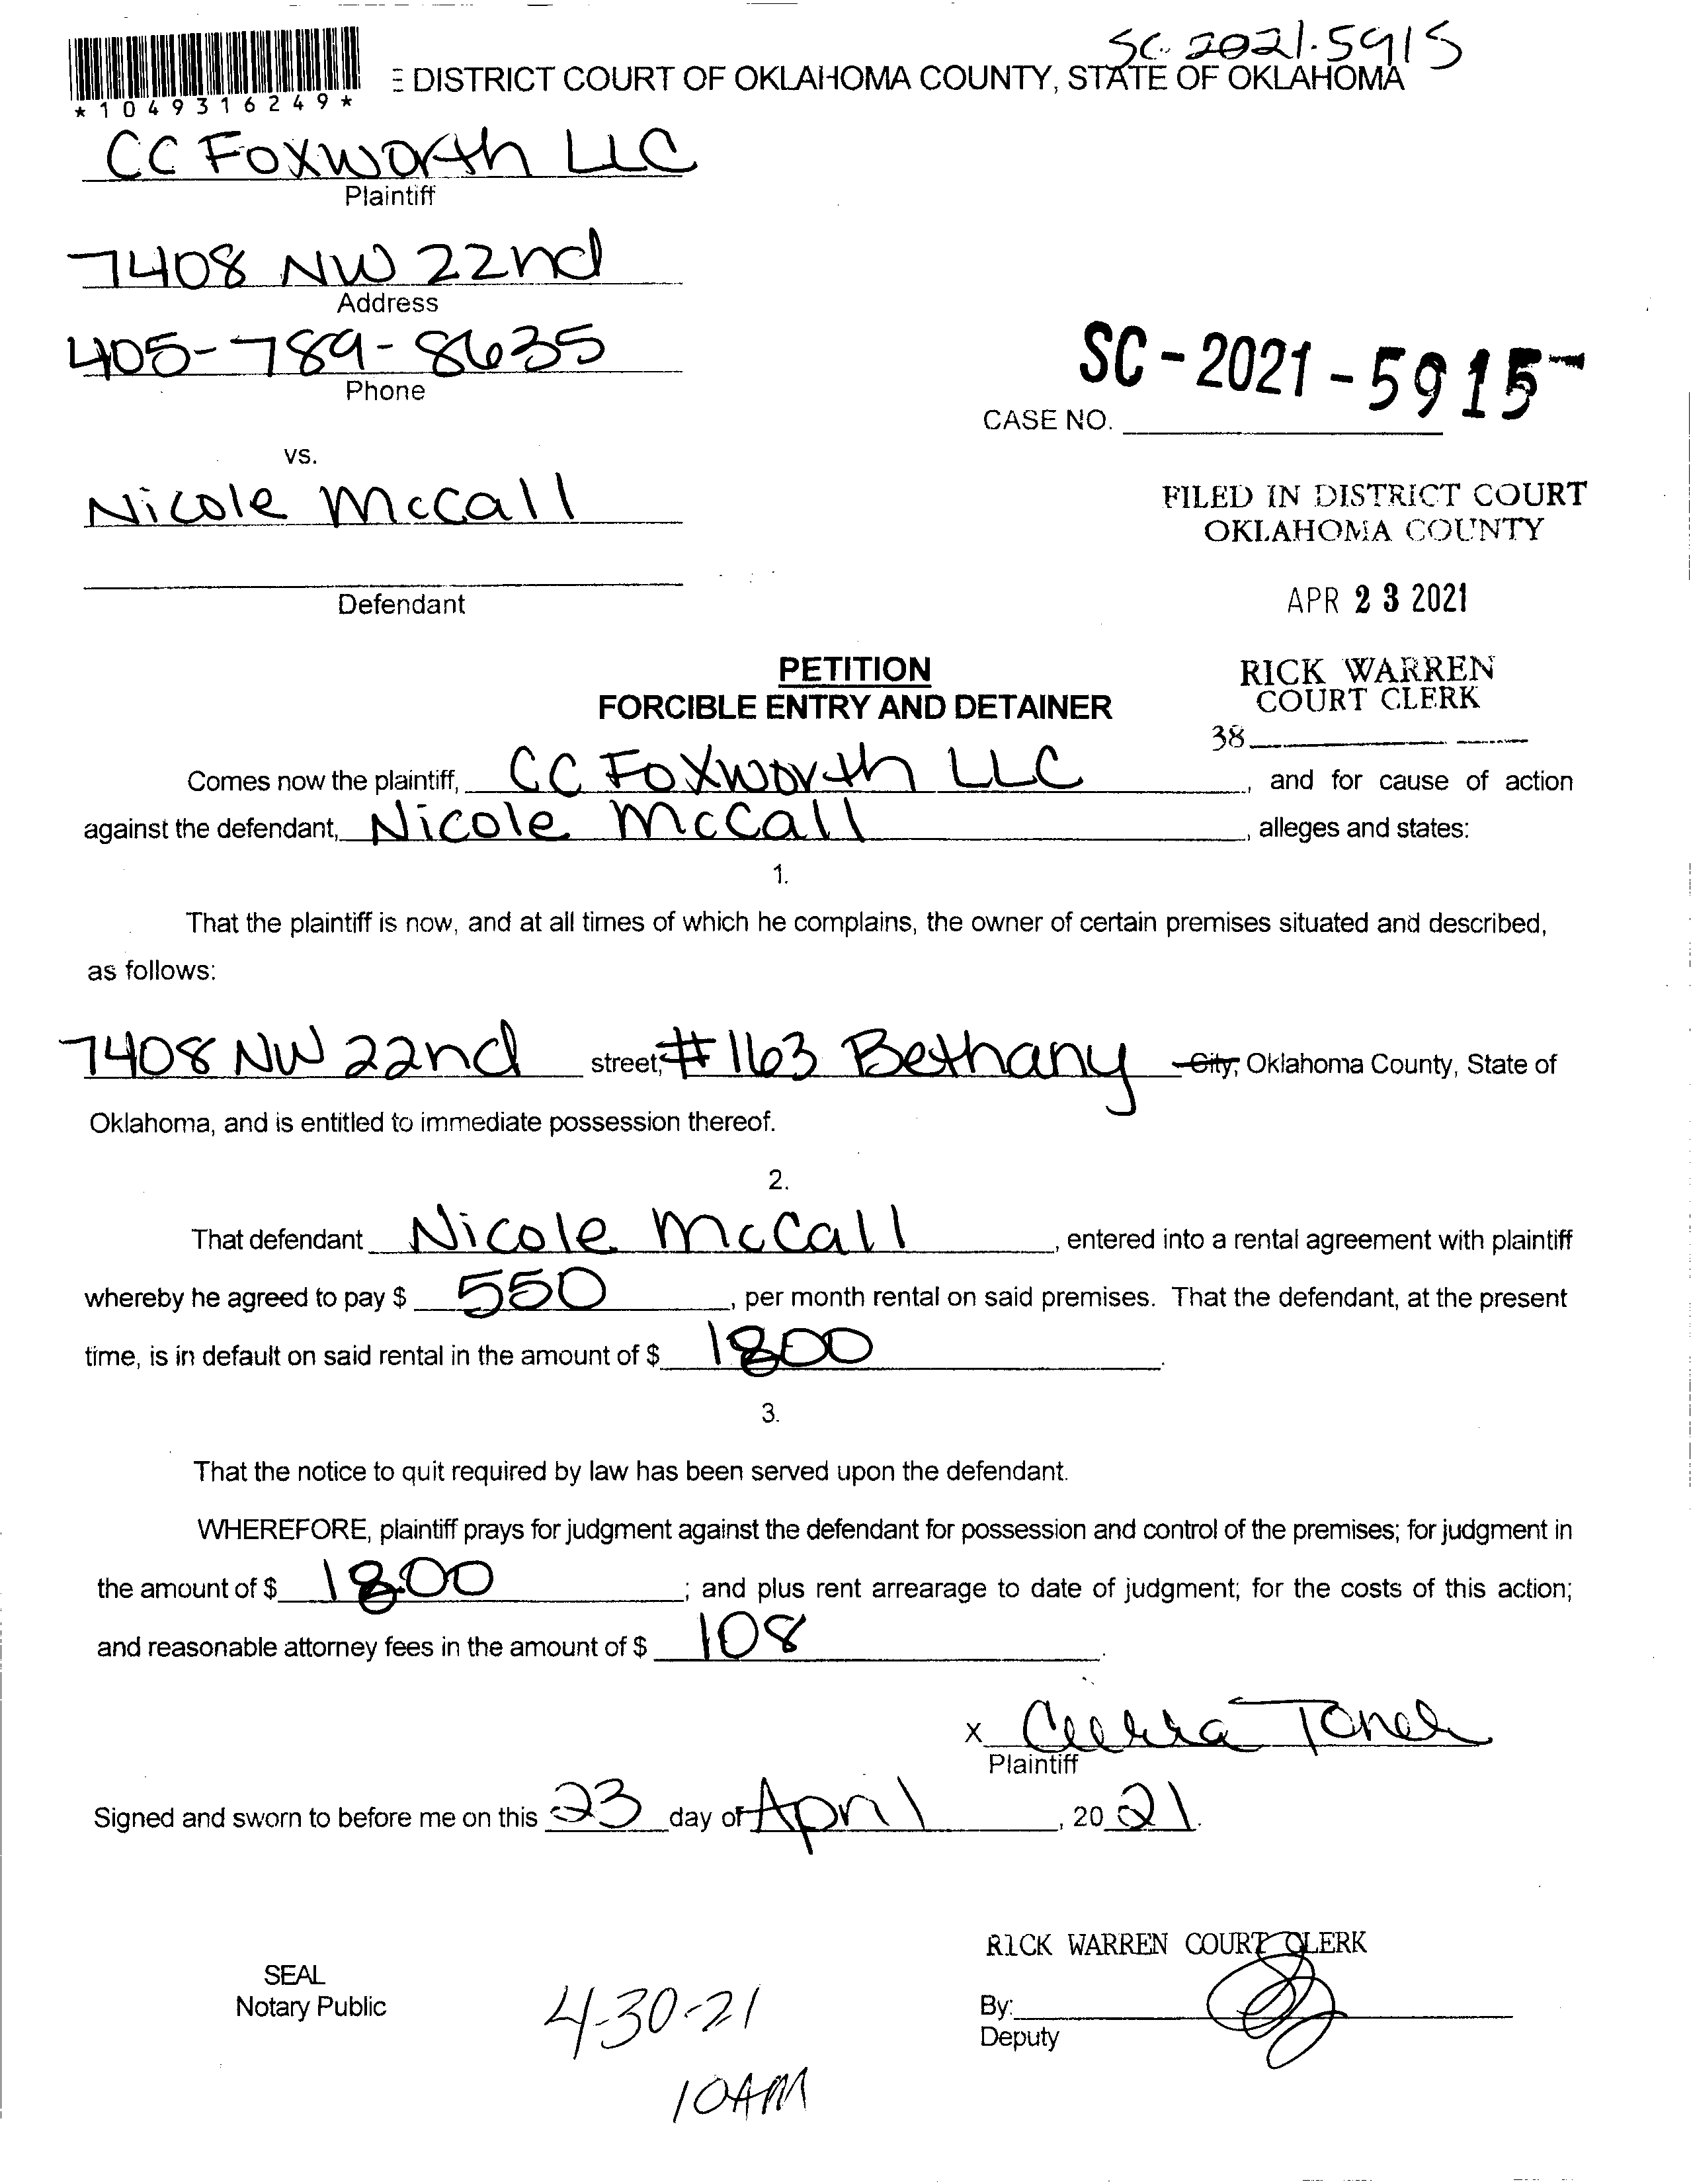 SC-2021-5915
E DISTRICT COURT OF OKLAHOMA COUNTY, STATE OF OKLAHOMA
*1049316249*
CC Foxworth LLC
Plaintiff
7408 NW 22nd
Address
405-789-8635
Phone
SC-2021-5915
CASE NO.
vs.
Nicole McCall
FILED IN DISTRICT COURT
OKLAHOMA COUNTY
Defendant
APR 23 2021
PETITION
FORCIBLE ENTRY AND DETAINER
RICK WARREN
COURT CLERK
38
Comes now the plaintiff, CC Foxworth LLC, and for cause of action
against the defendant, Nicole McCall, alleges and states:
1.
That the plaintiff is now, and at all times of which he complains, the owner of certain premises situated and described,
as follows:
7408 NW 22nd street, #163 Bethany City, Oklahoma County, State of
Oklahoma, and is entitled to immediate possession thereof.
2.
That defendant Nicole McCall, entered into a rental agreement with plaintiff
whereby he agreed to pay $ 550, per month rental on said premises. That the defendant, at the present
time, is in default on said rental in the amount of $ 1800.
3.
That the notice to quit required by law has been served upon the defendant.
WHEREFORE, plaintiff prays for judgment against the defendant for possession and control of the premises; for judgment in
the amount of $ 1800; and plus rent arrearage to date of judgment; for the costs of this action;
and reasonable attorney fees in the amount of $ 108.
X
Plaintiff
Signed and sworn to before me on this 23 day of April, 2021.
RICK WARREN COURT CLERK
SEAL
Notary Public
4-30-21
By:
Deputy
10AM